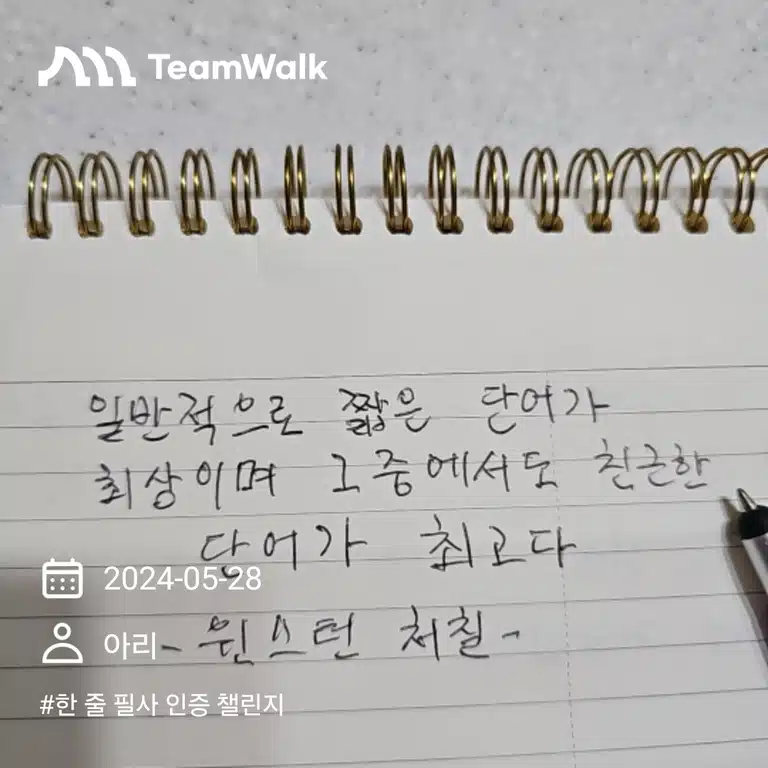 TeamWalk
일반적으로 짧은 단어가
최상이며 그중에서도 친근한
단어가 최고다
2024-05-28
아리
- 윈스턴 처칠 -
#한 줄 필사 인증 챌린지